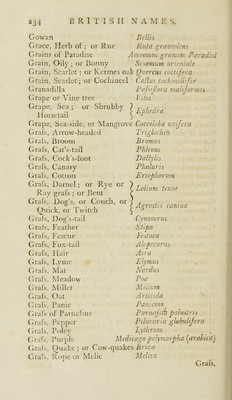 234 BRITISH NAMES.
Gowan Bellis
Grace, Herb of; or Rue Ruta graveolens
Grains of Paradise Amomum granum Paradisi
Grain, Oily; or Bonny Sesamum orientale
Grain, Scarlet; or Kermes oak Quercus coccifera
Grain, Scarlet; or Cochineel Cactus cochinillifer
Granadilla Passiflora maliformis
Grape or Vine tree Vitis
Grape, Sea; or Shrubby } Ephedra
Horsetail
Grape, Sea-side, or Mangrove Coccoloba uvifera
Graſs, Arrow-headed Triglochin
Graſs, Broom Bromus
Graſs, Cat's-tail Phleum
Graſs, Cock's-foot Dactylis
Graſs, Canary Phalaris
Graſs, Cotton Eriophorum
Graſs, Darnel; or Rye or } Lolium tenue
Ray graſs; or Bent
Graſs, Dog's, or Couch, or } Agrostis canina
Quick, or Twitch
Graſs, Dog's-tail Cynosurus
Graſs, Feather Stipa
Graſs, Fescue Festuca
Graſs, Fox-tail Alopecurus
Graſs, Hair Aira
Graſs, Lyme Elymus
Graſs, Mat Nardus
Graſs, Meadow Poa
Graſs, Millet Milium
Graſs, Oat Avena
Graſs, Panic Panicum
Graſs of Parnaſſus Parnassia palustris
Graſs, Pepper Pilularia globulifera
Graſs, Poley Lythrum
Graſs, Purple Medicago polymorpha (arabica)
Graſs, Quake; or Cow-quakes Briza
Graſs, Rope or Melic Melica
Graſs,